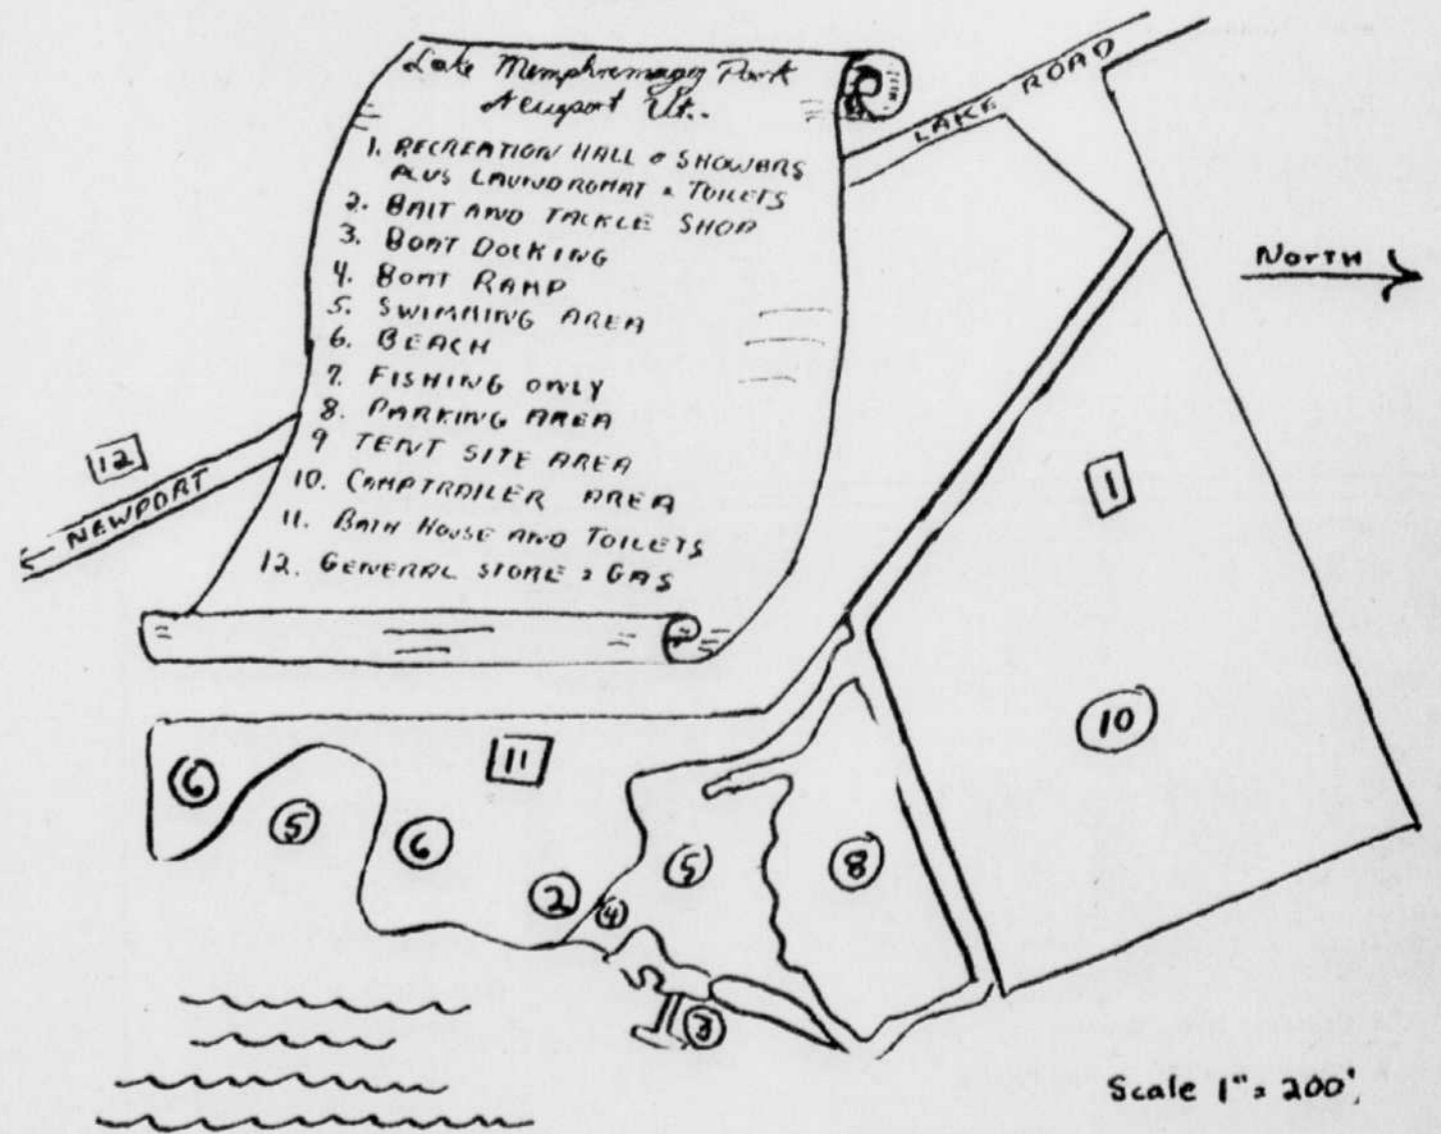 Lake Memphremagog Park
Newport Vt..
1. RECREATION HALL & SHOWERS
PLUS LAUNDROMAT & TOILETS
2. BAIT AND TACKLE SHOP
3. BOAT DOCKING
4. BOAT RAMP
5. SWIMMING AREA
6. BEACH
7. FISHING ONLY
8. PARKING AREA
9 TENT SITE AREA
10. CAMPTRAILER AREA
11. BATH HOUSE AND TOILETS
12. GENERAL STORE & GAS
LAKE ROAD
NORTH
12
NEWPORT
1
10
11
6
5
6
2
4
5
8
3
Scale 1" = 200'